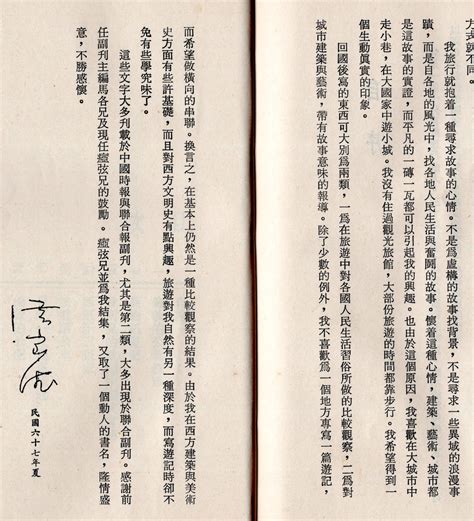 方式就不同。
我旅行就抱着一種尋求故事的心情。不是爲虛構的故事找背景，不是尋求一些異域的浪漫事
蹟，而是自各地的風光中，找各地人民生活與奮鬪的故事。懷着這種心情，建築、藝術、城市都
是這故事的實證，而平凡的一磚一瓦都可以引起我的興趣。也由於這個原因，我喜歡在大城市中
走小巷，在大國家中遊小城。我沒有住過觀光旅館，大部份旅遊的時間都靠步行。我希望得到一
個生動眞實的印象。
回國後寫的東西可大別爲兩類，一爲在旅遊中對各國人民生活習俗所做的比較觀察，二爲對
城市建築與藝術，帶有故事意味的報導。除了少數的例外，我不喜歡爲一個地方專寫一篇遊記，
而希望做橫向的串聯。換言之，在基本上仍然是一種比較觀察的結果。由於我在西方建築與美術
史方面有些許基礎，而且對西方文明史有點興趣，旅遊對我自然有另一種深度，而寫遊記時卻不
免有些學究味了。
這些文字大多刊載於中國時報與聯合報副刊，尤其是第二類，大多出現於聯合副刊。感謝前
任副刊主編馬各兄及現任瘂弦兄的鼓勵。瘂弦兄並爲我結集，又取了一個動人的書名，隆情盛
意，不勝感懷。
民國六十七年夏